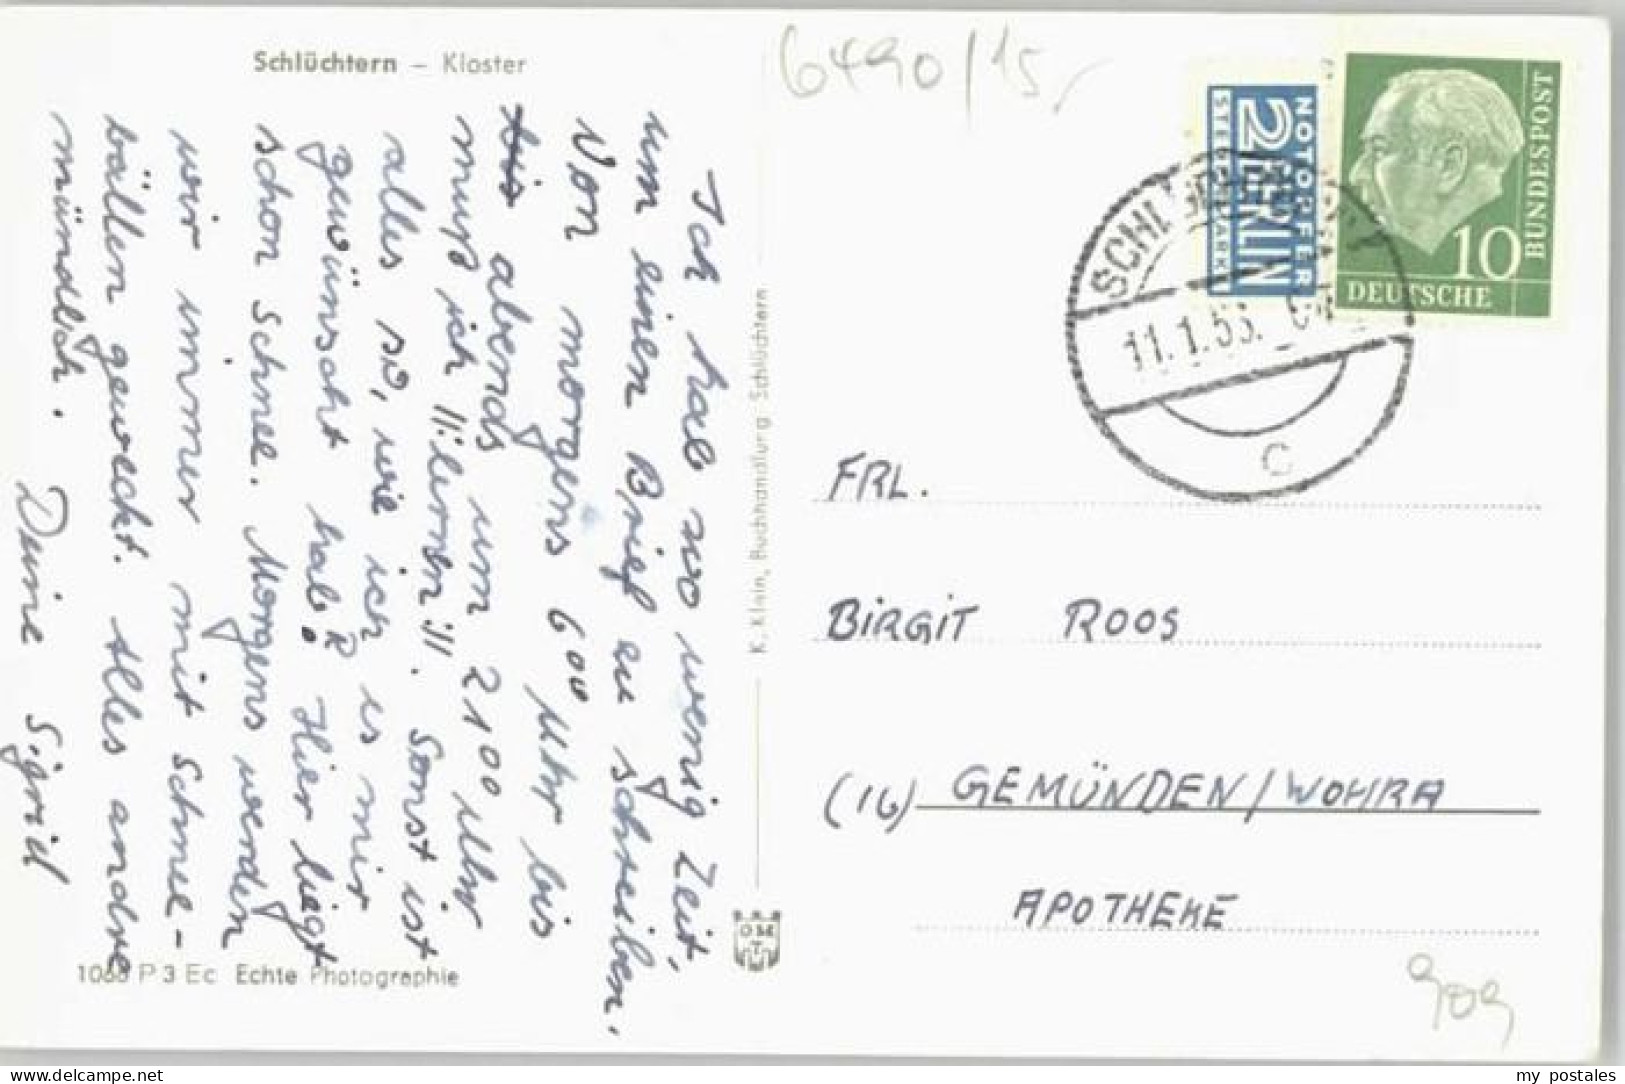 Schlüchtern – Kloster
6490/15
Ich hab so wenig Zeit,
um einen Brief zu schreiben.
Von morgens 6⁰⁰ Uhr bis
bis abends um 21⁰⁰ Uhr
muß ich lernen!!! Sonst ist
alles so, wie ich is mir
gewünscht hab! Hier liegt
schon Schnee. Morgens werden
wir immer mit Schnee-
bällen geweckt. Alles andre
mündlich. Deine Sigrid
1068 P 3 Ec Echte Photographie
K. Klein, Buchhandlung Schlüchtern
NOTOPFER
2 BERLIN
STEUERMARKE
10
DEUTSCHE
BUNDESPOST
11.1.55.
c
FRL.
BIRGIT ROOS
(16) GEMÜNDEN/WOHRA
APOTHEKE
909
my postales